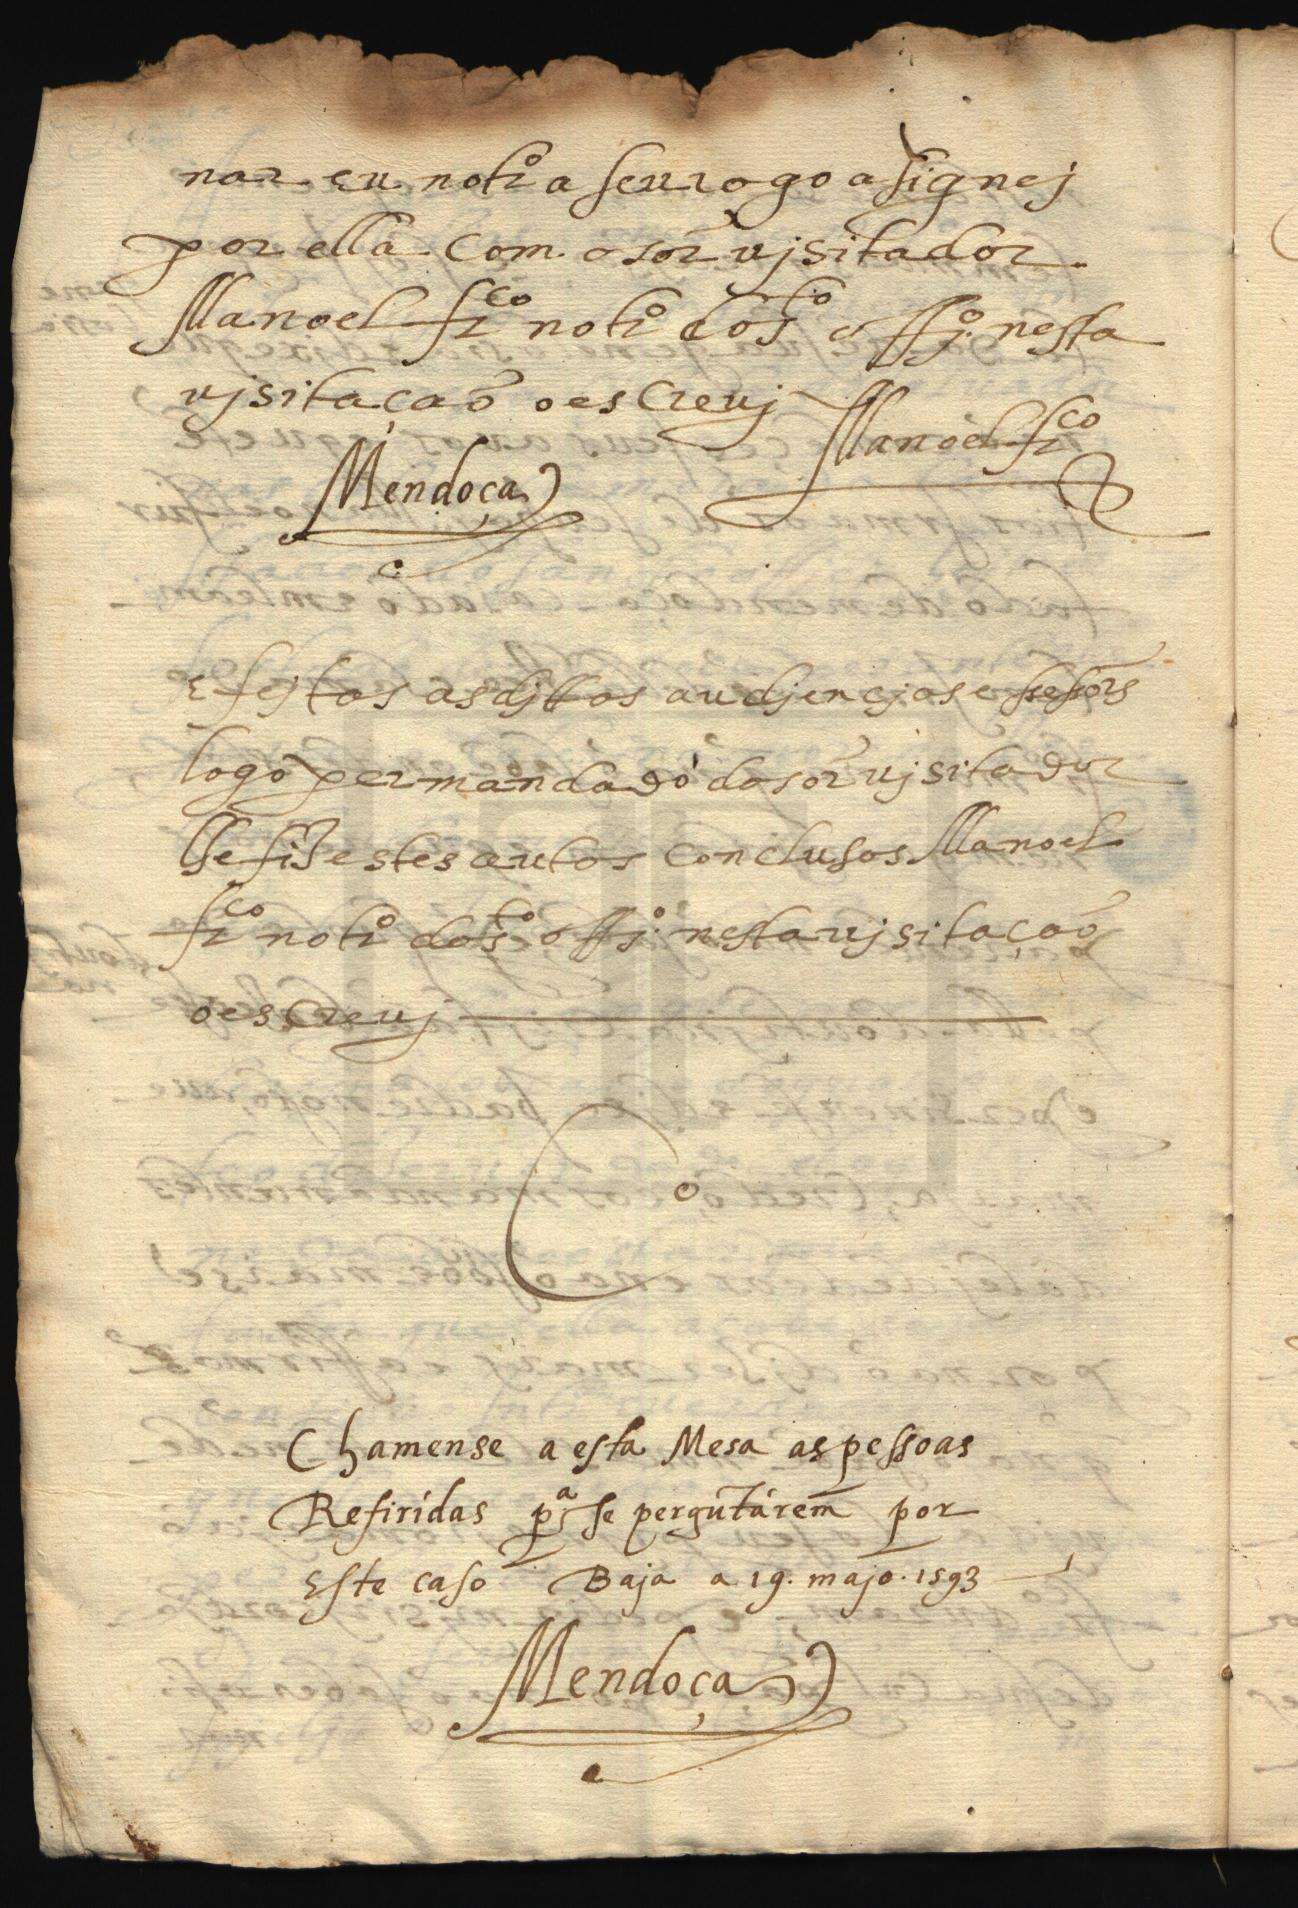 nar eu notrº a seu rogo asignej
por ella com o sor vjsitador
Manoel frco notrº do sto offjº nesta
vjsitação o escrevj
Manoel frco
Mendoça
E fejtas as djttas audjencjas e
logo per mandado do sor vjsitador
lhe fiz estes autos conclusos Manoel
frco notrº do sto offjº nesta vjsitação
o escrevj
Co
Chamense a esta Mesa as pessoas
Refiridas pª se pergutarem por
Este caso Baja a 19. majo. 1593
Mendoça